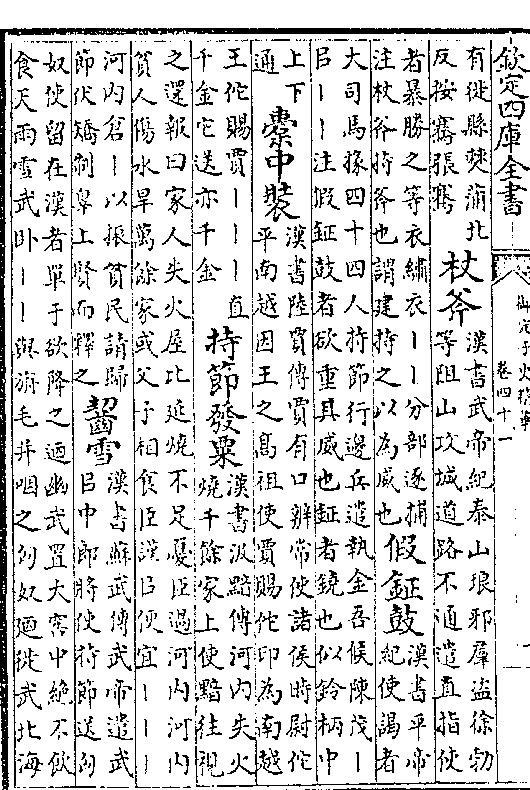 欽定四庫全書 御定子史精華 卷四十一
有徙縣莢蒲北
反按騫張騫
杖斧
漢書武帝紀泰山琅邪羣盗徐勃
等阻山攻城道路不通遣直指使
者暴勝之等衣繡衣丨丨分部逐捕
注杖斧持斧也謂建持之以為威也
假鉦鼓
漢書平帝
紀使謁者
大司馬掾四十四人持節行邊兵遣執金吾候陳茂丨
㠯丨丨注假鉦鼓者欲重其威也鉦者鐃也似鈴柄中
上下
通
橐中裝
漢書陸賈傳賈有口辨常使諸侯時尉佗
平南越因王之高祖使賈賜佗印為南越
王佗賜賈丨丨丨直
千金它送亦千金
持節發粟
漢書汲黯傳河内失火
燒千餘家上使黯往視
之還報曰家人失火屋比延燒不足憂臣過河内河内
貧人傷水旱萬餘家或父子相食臣謹㠯便宜丨丨
河内倉丨以振貧民請歸
節伏矯制辠上賢而釋之
齧雪
漢書蘇武傳武帝遣武
㠯中郎將使持節送匈
奴使留在漢者單于欲降之迺幽武置大窖中絶不飲
食天雨雪武卧丨丨與旃毛并咽之匈奴迺徙武北海